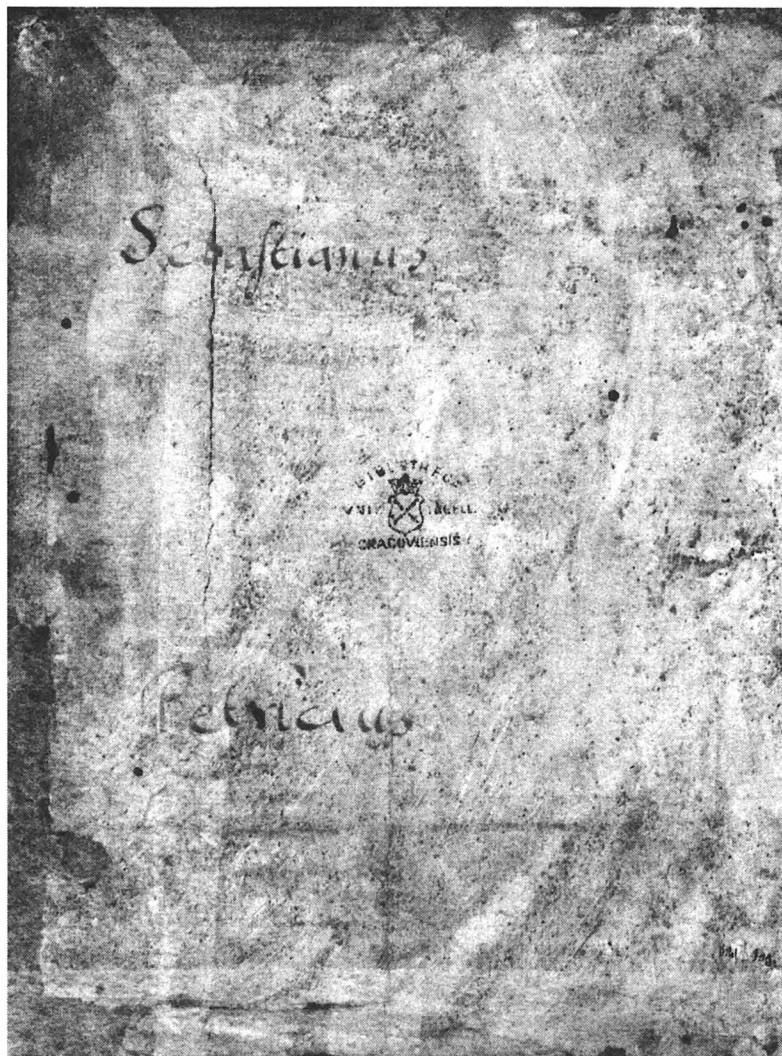 Sebastianus
BIBLIOTHECA
UNIV. JAGELL.
CRACOVIENSIS
Petricius